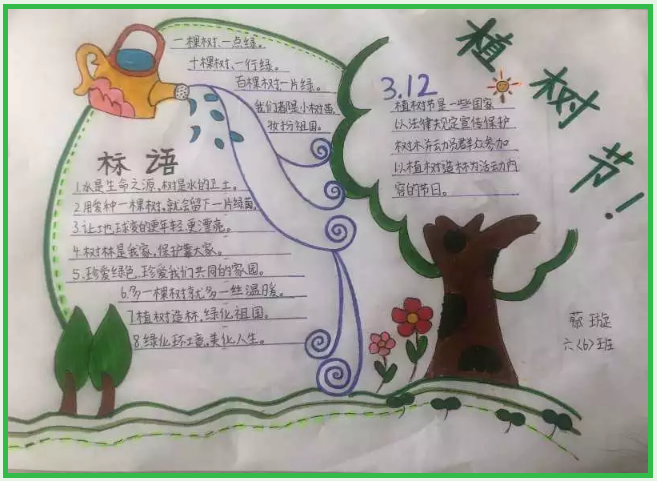 植树节!
3.12
植树节是一些国家
以法律规定宣传保护
树木并动员群众参加
以植树造林为活动内
容的节日。
一棵树、一点绿。
十棵树、一行绿。
百棵树一片绿。
我们都是小树苗,
妆扮祖国。
标语
1.水是生命之源,树是水的卫士。
2.用爱种一棵树,就会留下一片绿荫。
3.让地球变的更年轻更漂亮。
4.树林是我家,保护靠大家。
5.珍爱绿色,珍爱我们共同的家园。
6.多一棵树就多一丝温暖。
7.植树造林,绿化祖国。
8.绿化环境,美化人生。
璇
六〈6〉班